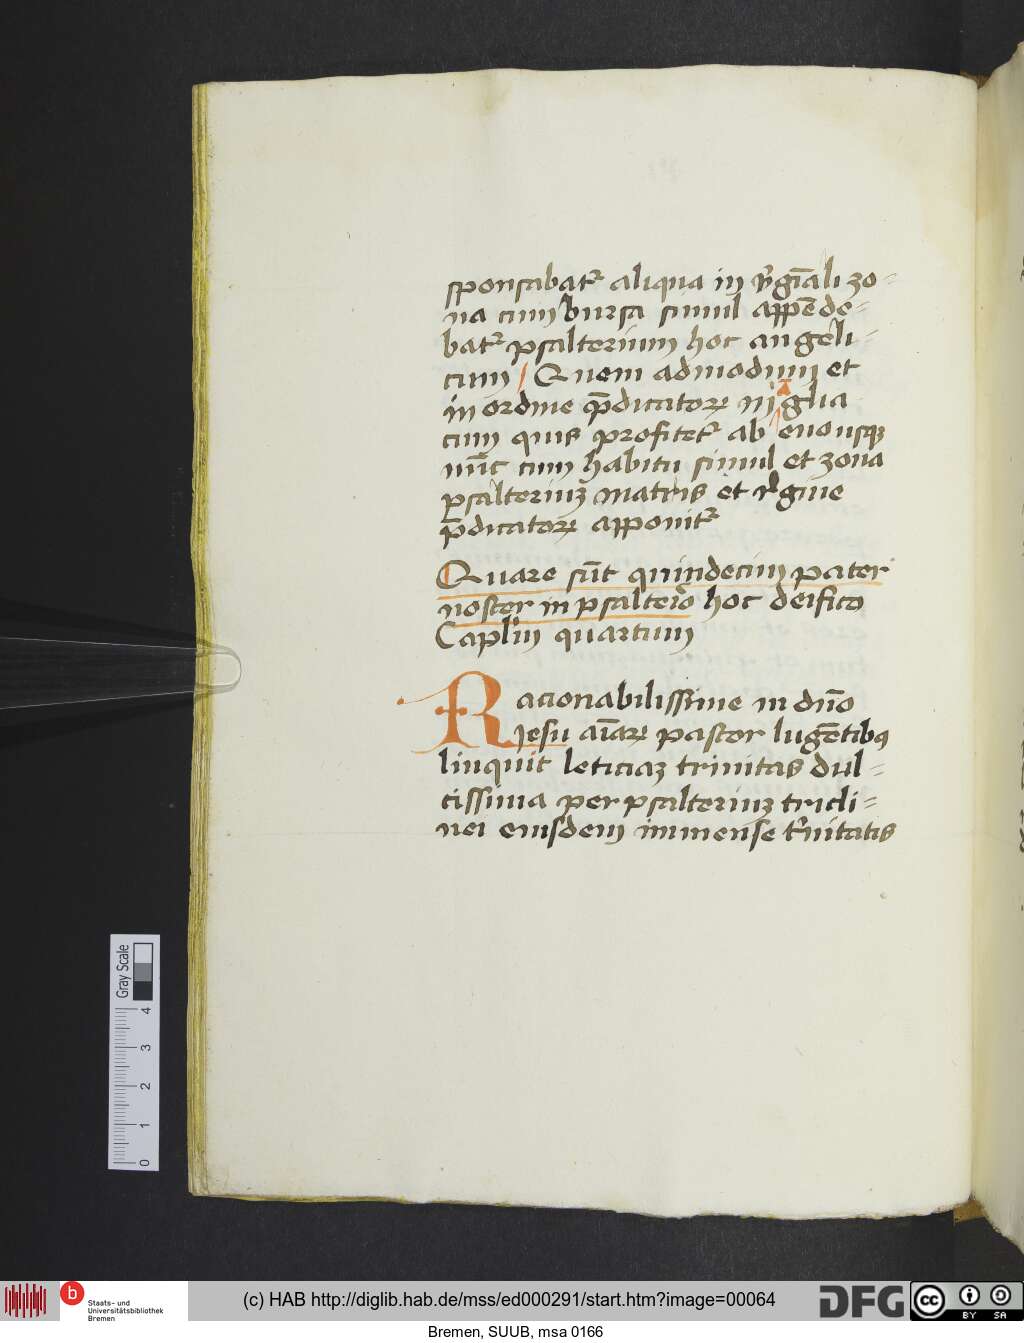 sponsabat᷑ aliqua in v̾gīali zo-
na cum bursa simul appēde-
bat᷑ psalterium hoc angeli-
cum / Quem admodum et
in ordine p̄dicatoꝝ in
cum quis profitet᷑ ab euo usqꝫ
nūc cum habitu simul et zona
psalteriuꝫ matris et v̾gine
p̄dicatoꝝ apponit᷑
Quare sūt quindecim pater
noster in psalterio hoc deifico
Caplm̄ quartum
Racionabilissime in dn̄o
jesu aīaꝝ pastor lugētibꝰ
linquit leticiaꝫ trinitas dul=
cissima per psalteriuꝫ tricli=
nei eiusdem immense t̾nitatis
Gray Scale
4
3
2
1
0
b
Staats- und
Universitätsbibliothek
Bremen
(c) HAB http://diglib.hab.de/mss/ed000291/start.htm?image=00064
DFG
cc BY SA
Bremen, SUUB, msa 0166